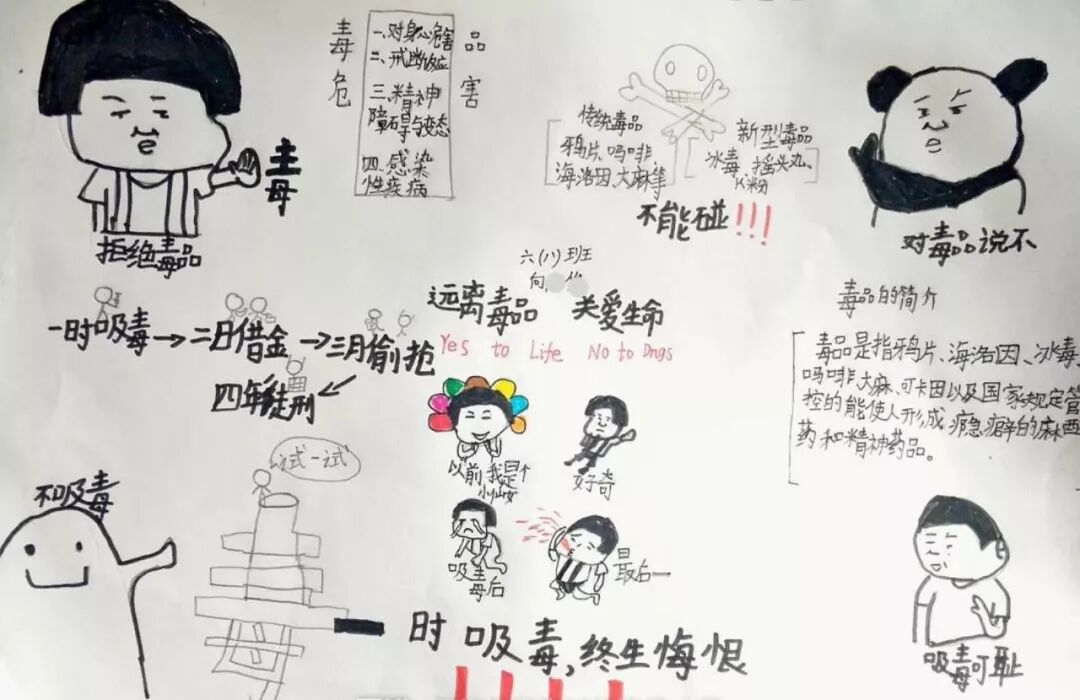 毒品
危害
一、对身心危害
二、戒断反应
三、精神
障碍与变态
四、感染
性疾病
传统毒品
鸦片、吗啡
海洛因、大麻等
新型毒品
冰毒、摇头丸、
K粉
不能碰!!!
主
毒
拒绝毒品
对毒品说不
六(八)班
向
远离毒品 关爱生命
Yes to Life No to Drgs
一时吸毒→二日借金→三月偷抢
四年徒刑
毒品的简介
毒品是指鸦片、海洛因、冰毒、
吗啡、大麻、可卡因以及国家规定管
控的能使人形成瘾癖的麻西
药和精神药品。
以前,我是个
小仙女
好奇
吸毒后
最后—
试一试
不吸毒
一时吸毒,终生悔恨
吸毒可耻